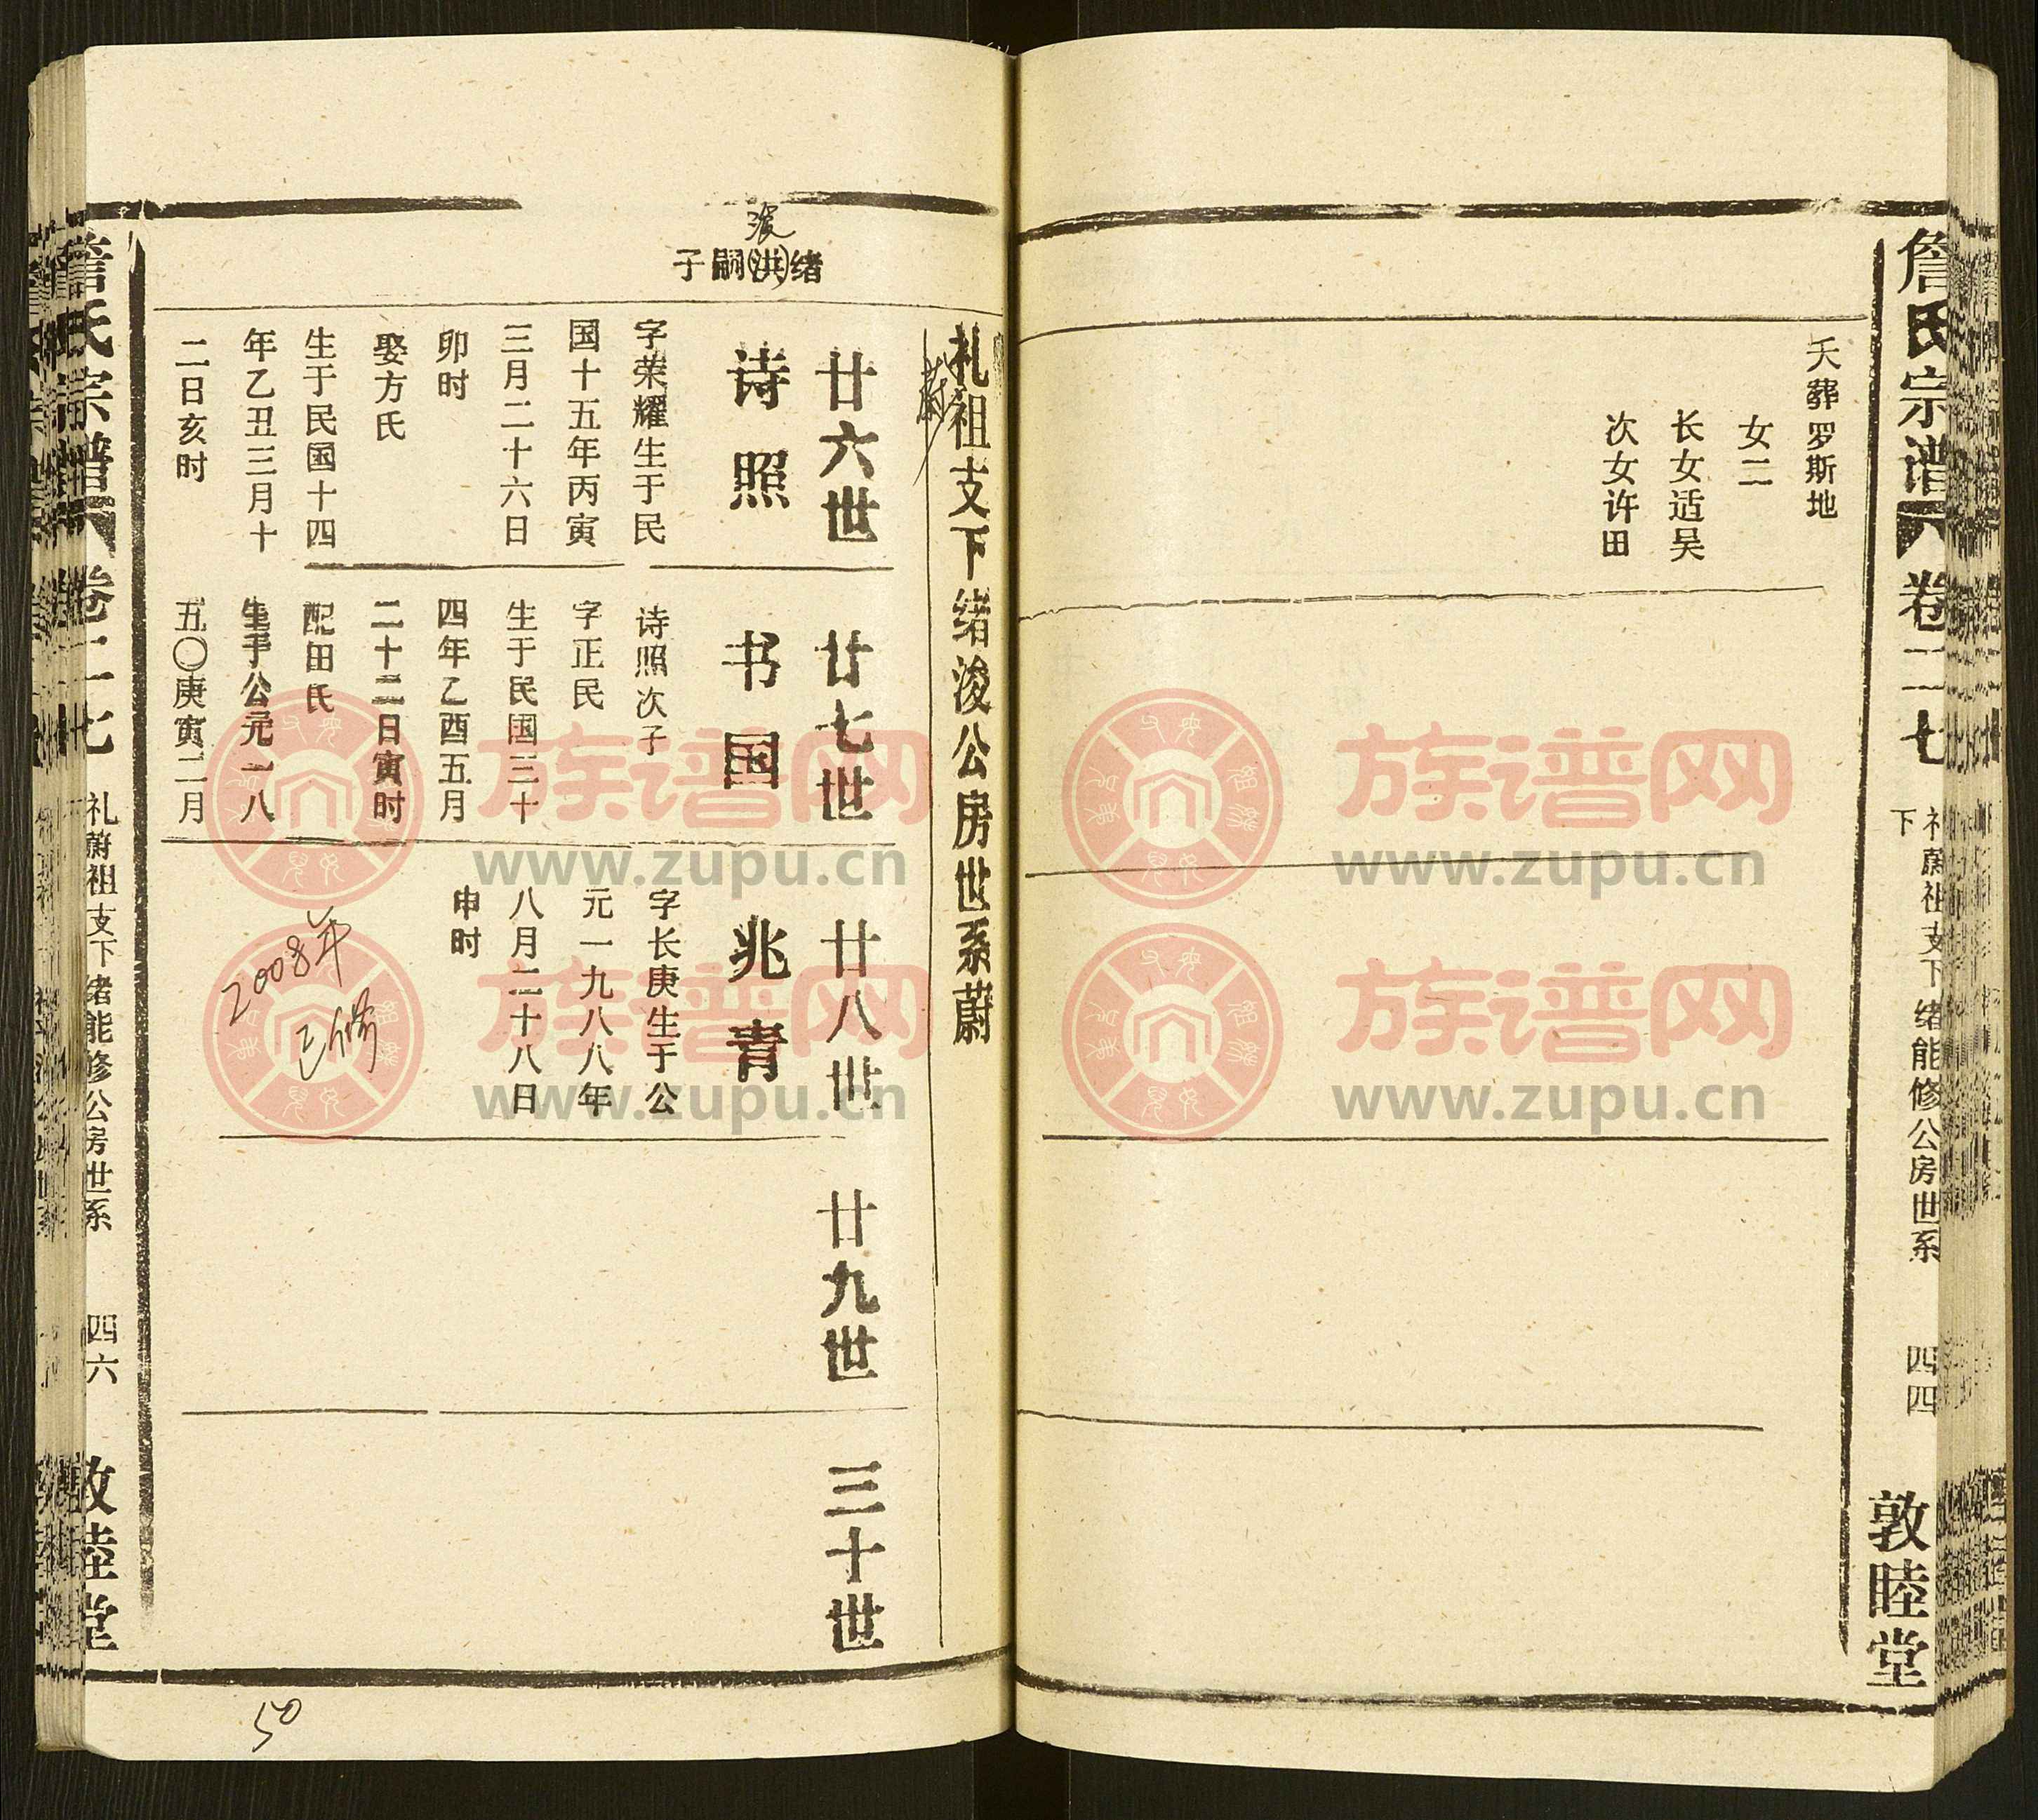 詹氏宗谱
卷二七
礼蔚祖支下绪能修公房世系
下
四四
敦睦堂
夭葬罗斯地
女二
长女适吴
次女许田
礼祖支下绪浚公房世系蔚
蔚
廿六世
廿七世
廿八世
廿九世
三十世
浚
绪洪嗣子
诗照
字荣耀生于民
国十五年丙寅
三月二十六日
卯时
娶方氏
生于民国十四
年乙丑三月十
二日亥时
书国
诗照次子
字正民
生于民国三十
四年乙酉五月
二十二日寅时
配田氏
生于公元一八
五〇庚寅二月
兆青
字长庚生于公
元一九八八年
八月二十八日
申时
2008年
已修
詹氏宗谱
卷二七
礼蔚祖支下绪能修公房世系
四六
敦睦堂
50
族谱网
www.zupu.cn
族谱网
www.zupu.cn
族谱网
www.zupu.cn
族谱网
www.zupu.cn